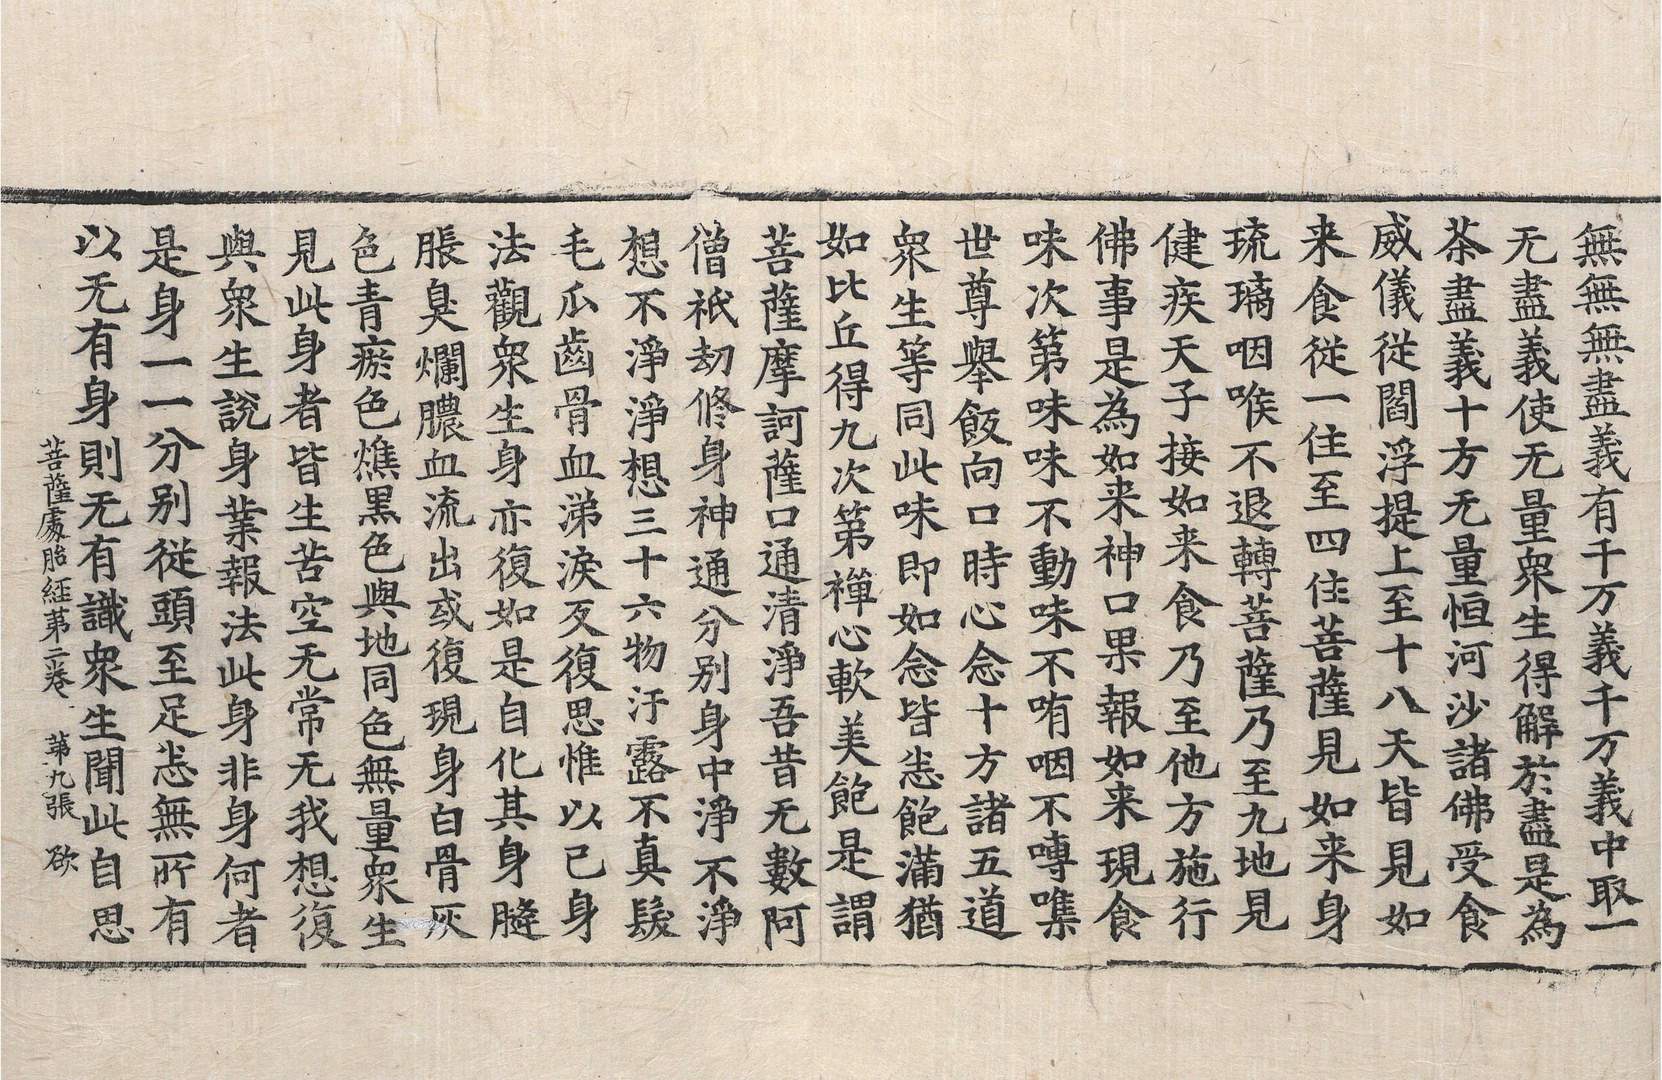 無無無盡義有千万義千万義中取一
无盡義使无量眾生得解於盡是為
茶盡義十方无量恒河沙諸佛受食
威儀從閻浮提上至十八天皆見如
来食從一住至四住菩薩見如来身
琉璃咽喉不退轉菩薩乃至九地見
健疾天子接如来食乃至他方施行
佛事是為如来神口果報如来現食
味次第味味不動味不喻咽不嗽嚼
世尊舉飯向口時心念十方諸五道
眾生等同此味即如念皆悉飽滿猶
如比丘得九次第禪心軟美飽是謂
菩薩摩訶薩口通清淨吾昔无數阿
僧祇劫修身神通分别身中淨不淨
想不淨淨想三十六物汙露不真髮
毛爪齒骨血涕淚又復思惟以己身
法觀眾生身亦復如是自化其身膖
脹臭爛膿血流出或復現身白骨灰
色青瘀色燋黑色與地同色無量眾生
見此身者皆生苦空无常无我想復
與眾生說身業報法此身非身何者
是身一一分别從頭至足悉無所有
以无有身則无有識眾生聞此自思
菩薩處胎經苐二卷 苐九張 欲